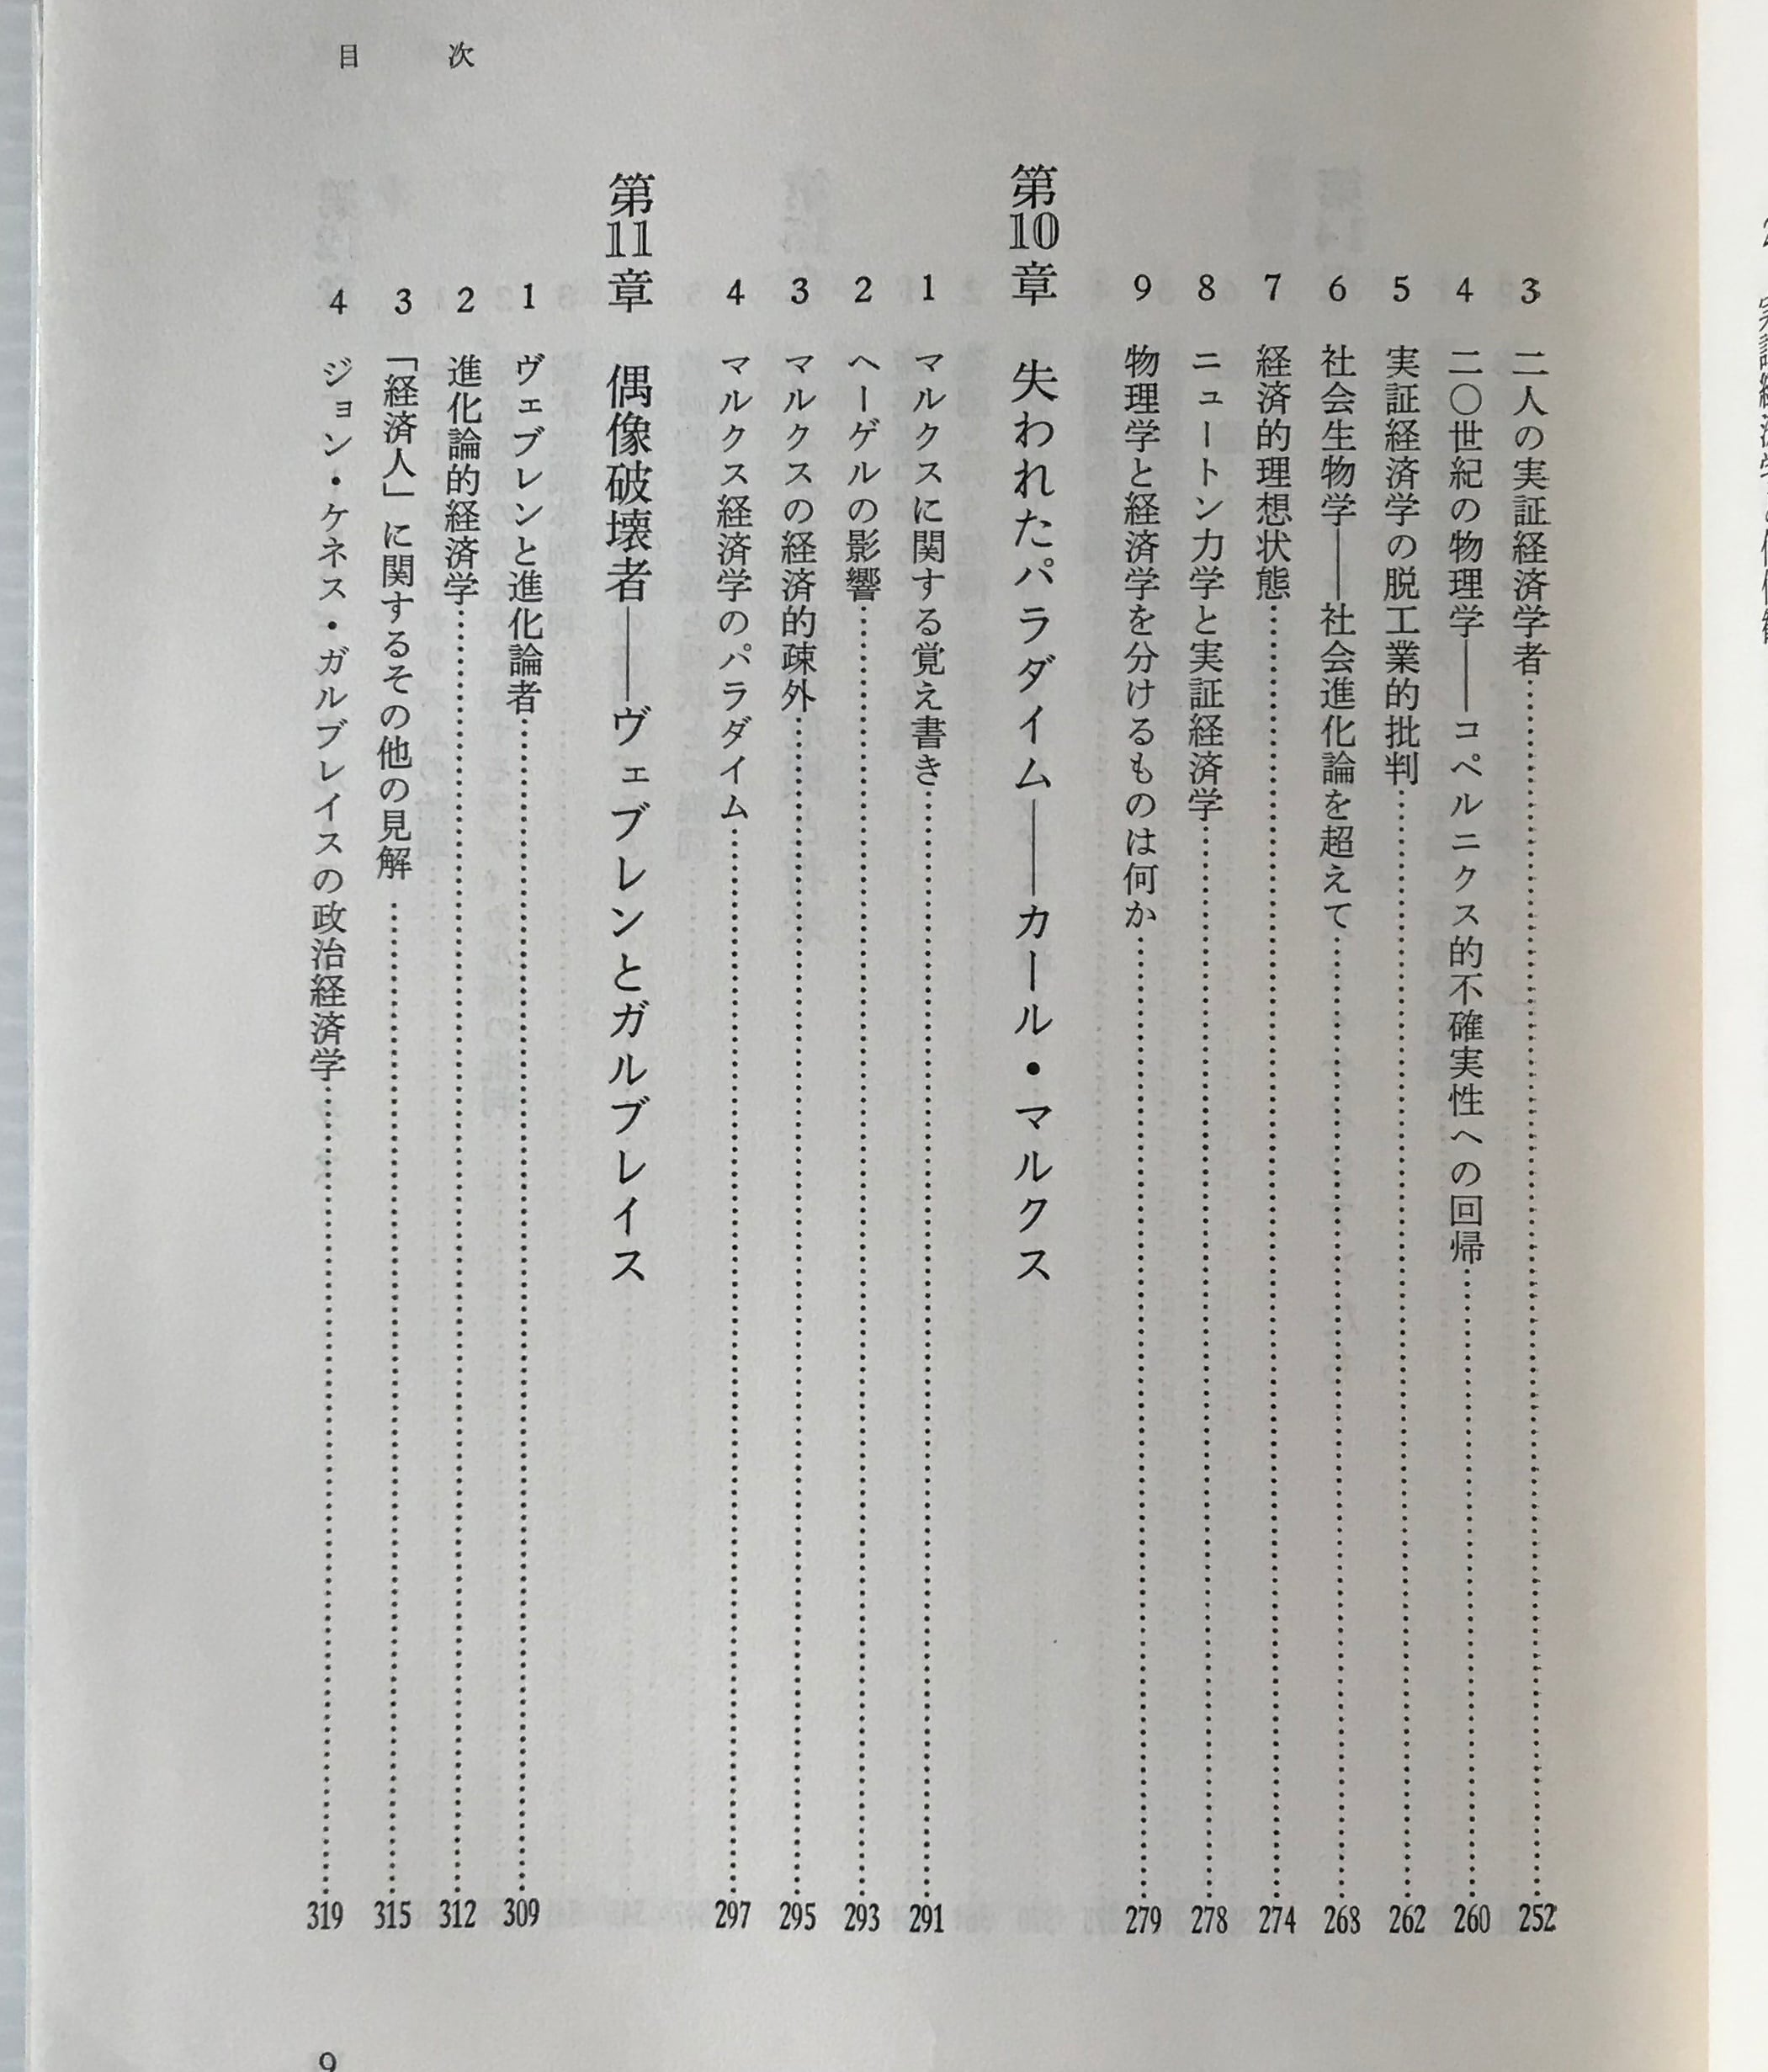 目次
3 二人の実証経済学者 252
4 二〇世紀の物理学――コペルニクス的不確実性への回帰 260
5 実証経済学の脱工業的批判 262
6 社会生物学――社会進化論を超えて 268
7 経済的理想状態 274
8 ニュートン力学と実証経済学 278
9 物理学と経済学を分けるものは何か 279
第10章 失われたパラダイム――カール・マルクス
1 マルクスに関する覚え書き 291
2 ヘーゲルの影響 293
3 マルクスの経済的疎外 295
4 マルクス経済学のパラダイム 297
第11章 偶像破壊者――ヴェブレンとガルブレイス
1 ヴェブレンと進化論者 309
2 進化論的経済学 312
3 「経済人」に関するその他の見解 315
4 ジョン・ケネス・ガルブレイスの政治経済学 319
9